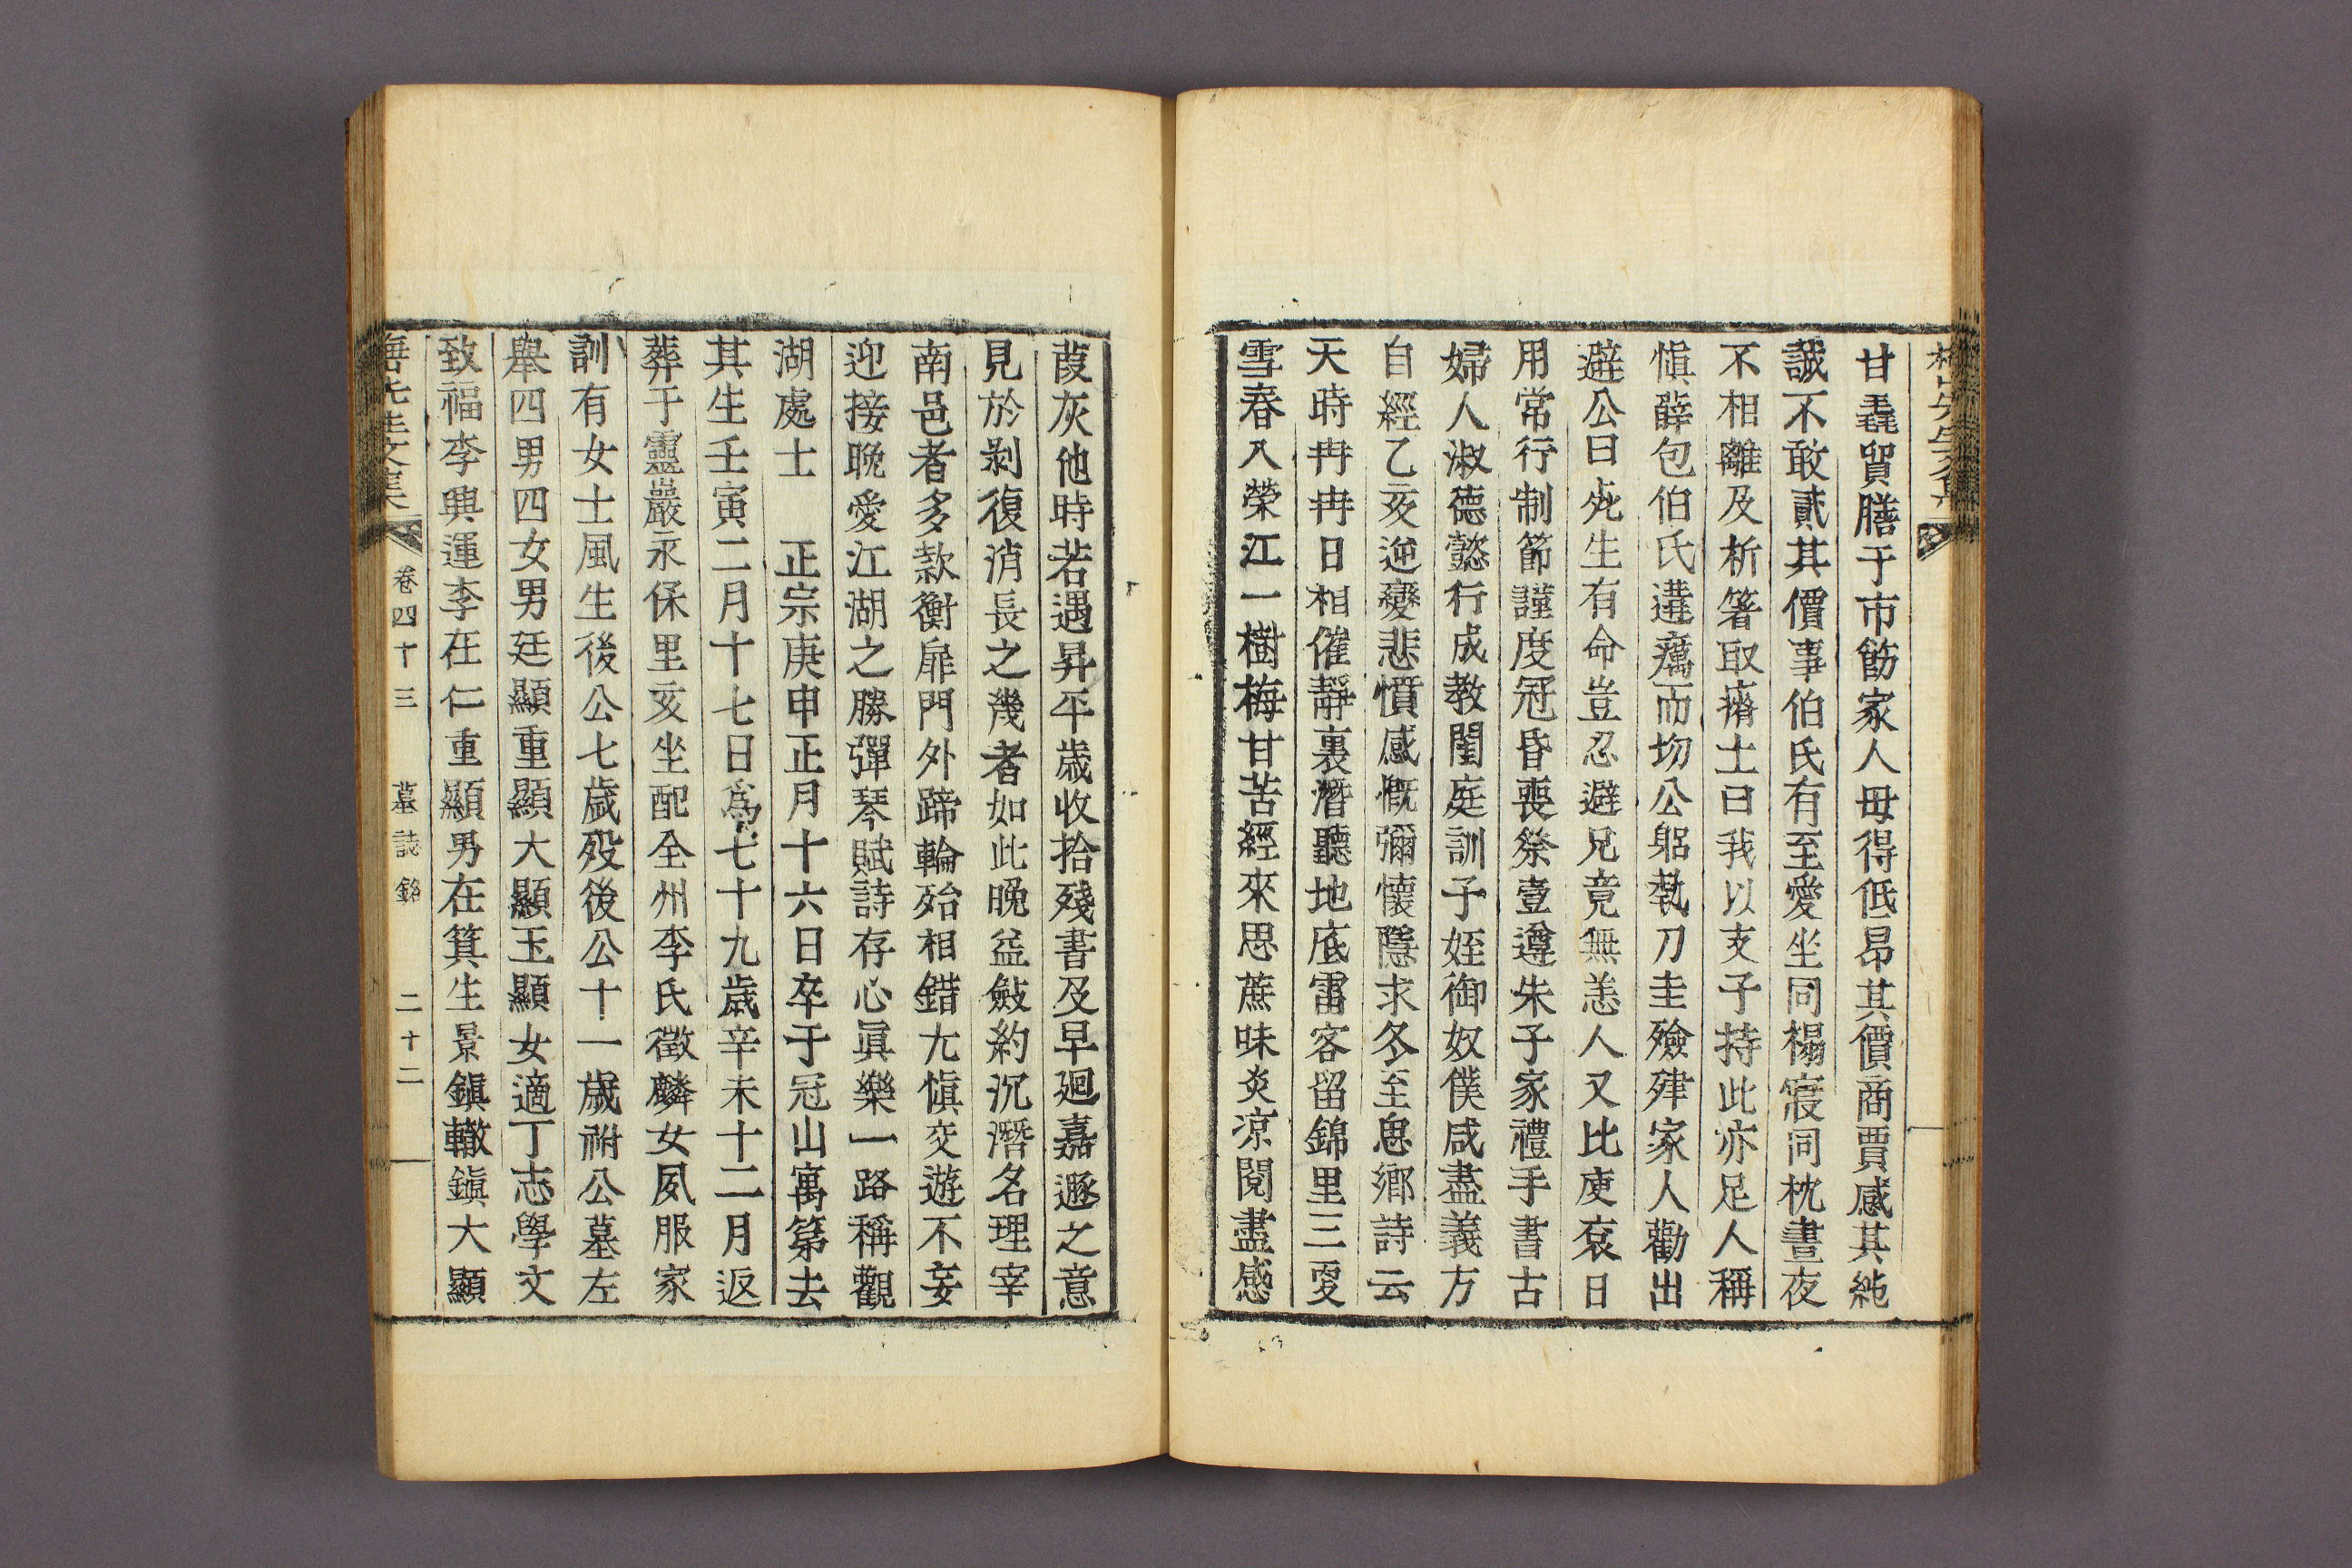 甘毳貿膳于市飭家人毋得低昂其價商賈感其純
誠不敢貳其價事伯氏有至愛坐同榻寢同枕晝夜
不相離及析箸取瘠土曰我以支子持此亦足人稱
愼薛包伯氏遘癘而㘬公躬執刀圭殮殔家人勸出
避公曰死生有命豈忍避兄竟無恙人又比庾袞日
用常行制節謹度冠昏喪祭壹遵朱子家禮手書古
婦人淑德懿行成敎閨庭訓子姪御奴僕咸盡義方
自經乙亥逆變悲憤感慨彌懷隱求冬至思鄕詩云
天時冉冉日相催靜裏潛聽地底雷客留錦里三更
雪春入榮江一樹梅甘苦經來思蔗味炎凉閱盡感
葭灰他時若遇昇平歲收拾殘書及早廻嘉遯之意
見於剝復消長之幾者如此晩益斂約沉潛名理宰
南邑者多款衡扉門外蹄輪殆相錯尢愼交遊不妄
迎接晩愛江湖之勝彈琴賦詩存心眞樂一路稱觀
湖處士　正宗庚申正月十六日卒于冠山寓第去
其生壬寅二月十七日爲七十九歲辛未十二月返
葬于靈巖永保里亥坐配全州李氏徵麟女夙服家
訓有女士風生後公七歲歿後公十一歲祔公墓左
擧四男四女男廷顯重顯大顯玉顯女適丁志學文
致福李興運李在仁重顯男在箕生景鎭轍鎭大顯
卷四十三　墓誌銘　二十二